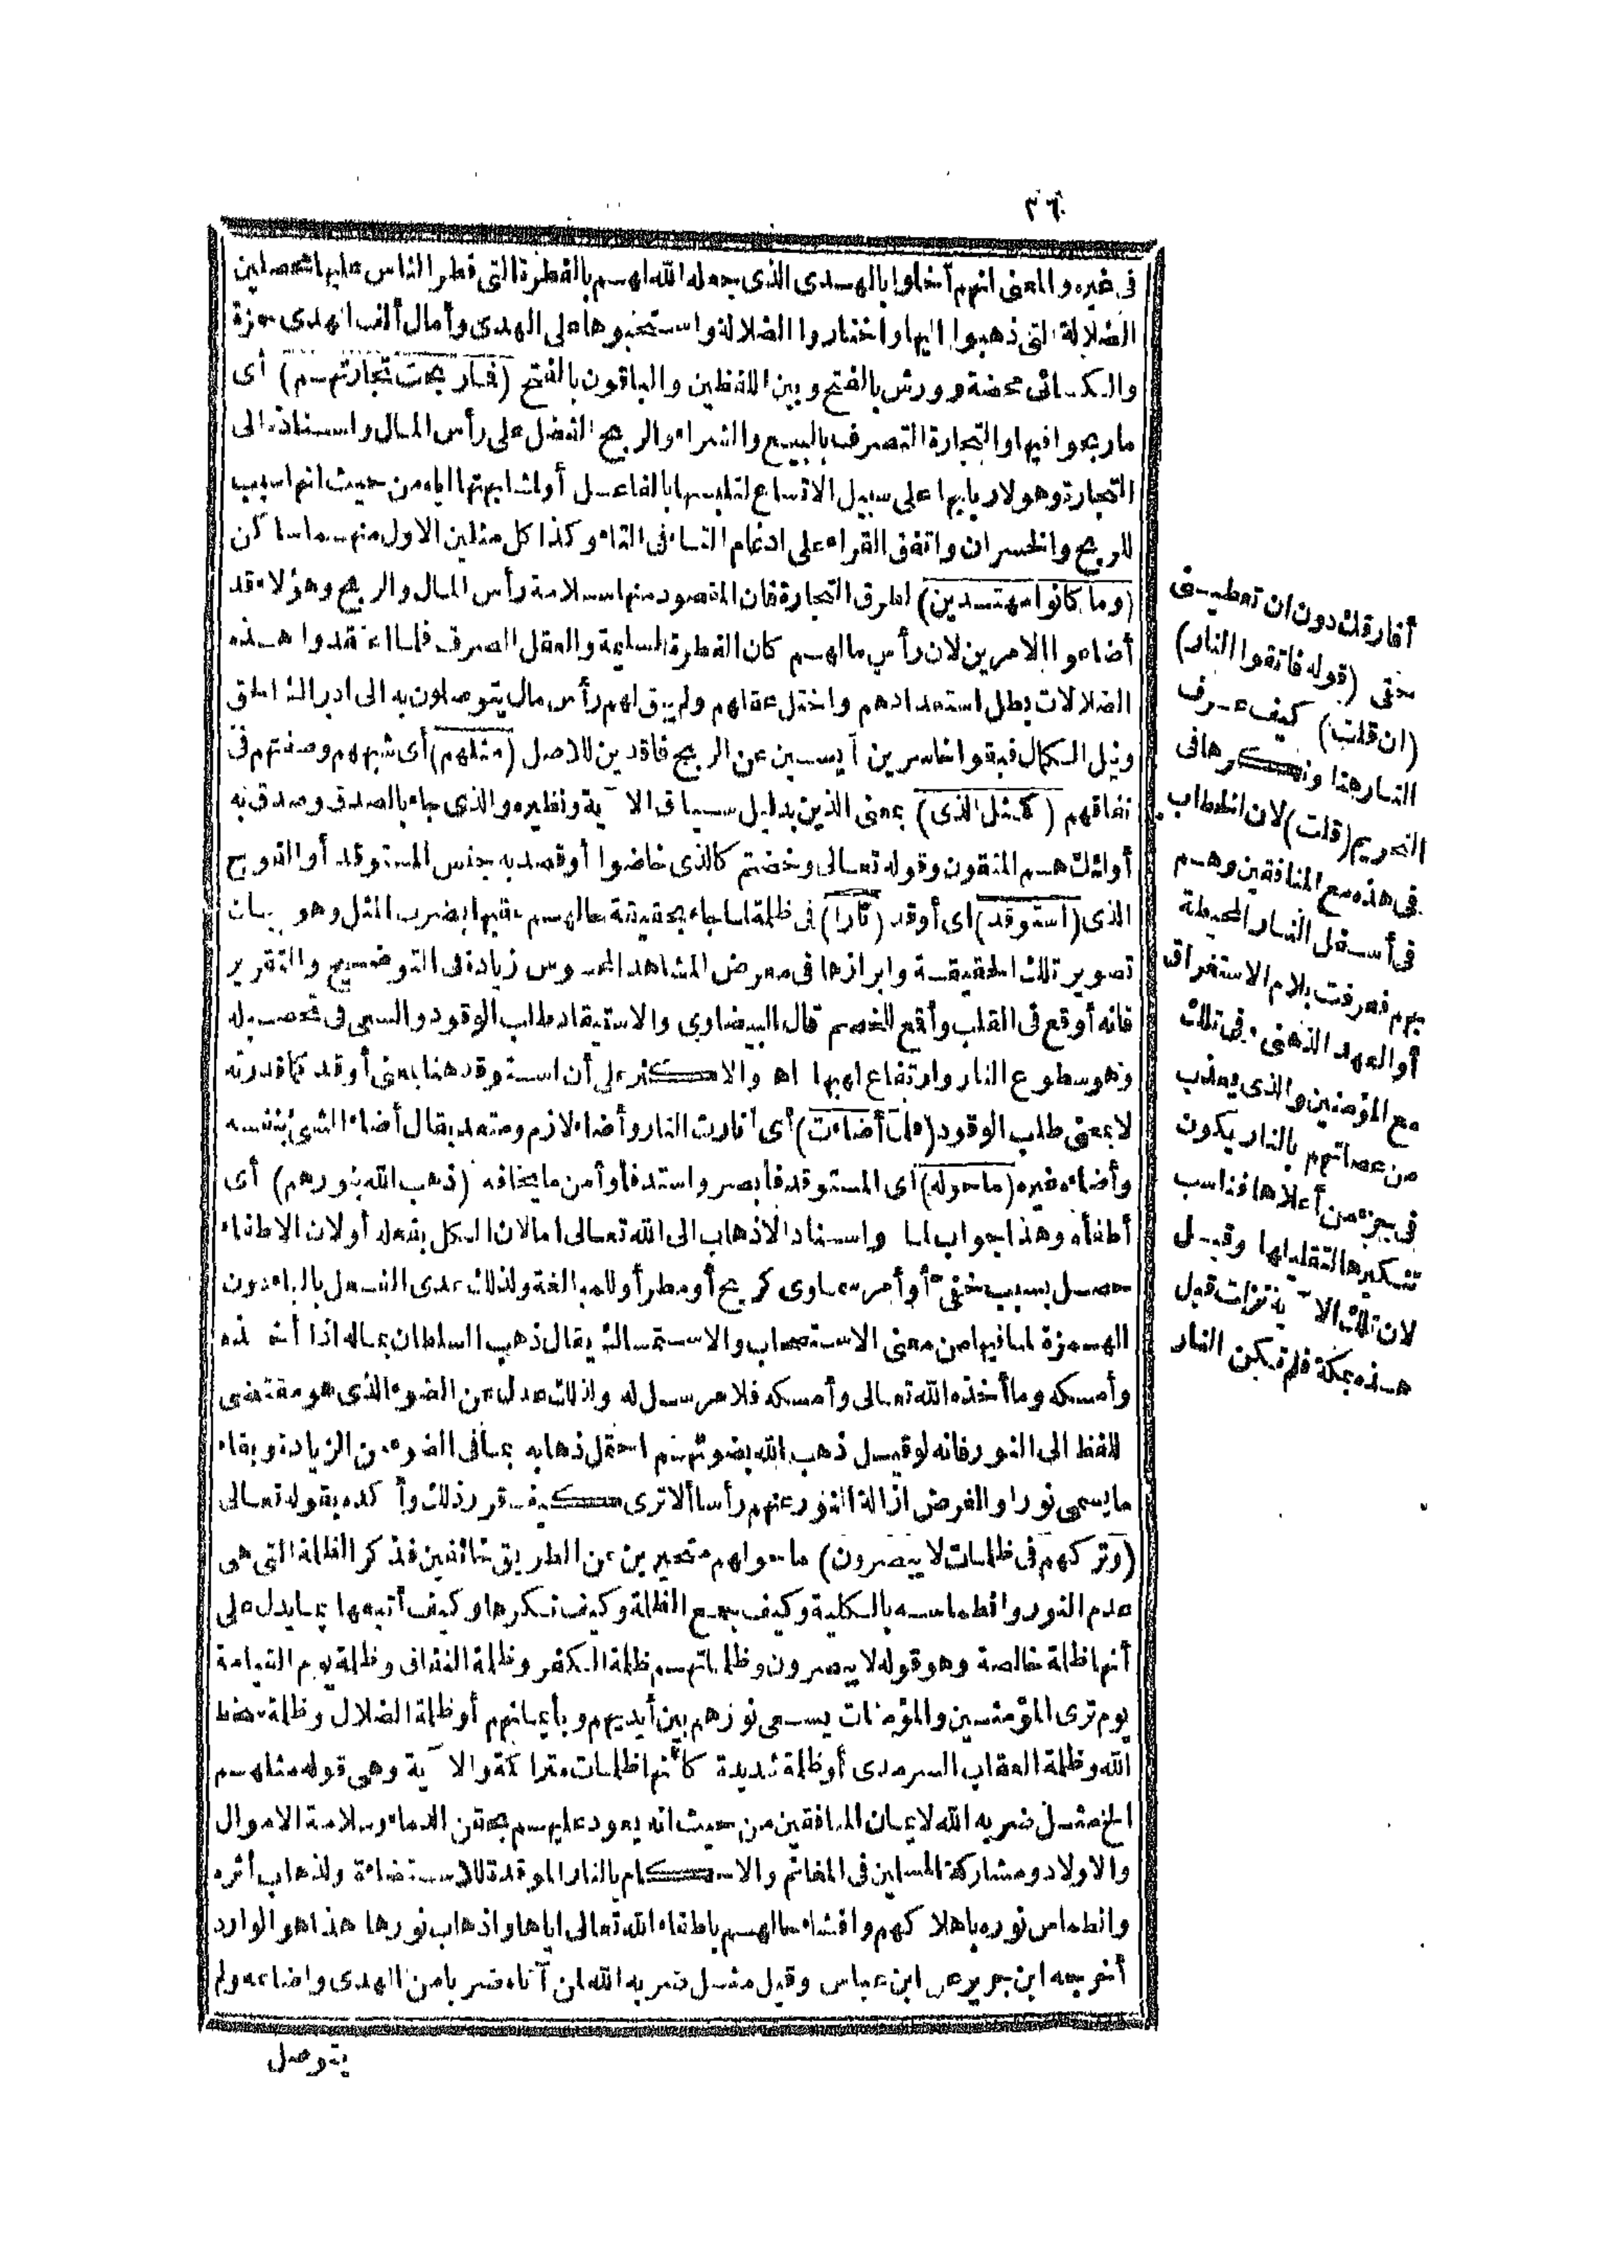 ٢٦
فى غيره والمعنى انهم أخلوا بالهدى الذى جعله الله لهم بالفطرة التى فطر الناس عليها محصلين
الضلالة التى ذهبوا اليها واختاروا الضلالة واستحبوها على الهدى وأمال ألف الهدى حمزة
والكسائى محضة وورش بالفتح وبين اللفظين والباقون بالفتح (فما ربحت تجارتهم) أى
ما ربحوا فيها والتجارة التصرف بالبيع والشراء والربح الفضل على رأس المال واسناده الى
التجارة وهو لاربابها على سبيل الاتساع لتلبسها بالفاعل أو لمشابهتها اياه من حيث انها سبب
للربح والخسران واتفق القراء على ادغام التاء فى التاء وكذا كل مثلين الاول منهما ساكن
(وما كانوا مهتدين) لطرق التجارة فان المقصود منها سلامة رأس المال والربح وهؤلاء قد
أضاعوا الامرين لان رأس مالهم كان الفطرة السليمة والعقل الصرف فلما اعتقدوا هذه
الضلالات بطل استعدادهم واختل عقلهم ولم يبق لهم رأس مال يتوصلون به الى ادراك الحق
ونيل الكمال فبقوا خاسرين آيسين عن الربح فاقدين للاصل (مثلهم) أى شبههم وصفتهم فى
نفاقهم (كمثل الذى) بمعنى الذين بدليل سياق الآية ونظيره والذى جاء بالصدق وصدق به
أولئك هم المتقون وقوله تعالى وخضتم كالذى خاضوا أو قصد به جنس المستوقد أو الفوج
الذى (استوقد) اى أوقد (نارا) فى ظلمة لما جاء بحقيقة حالهم عقبها بضرب المثل وهو بيان
تصوير تلك الحقيقة وابرازها فى معرض المشاهد المحسوس زيادة فى التوضيح والتقرير
فانه أوقع فى القلب وأقمع للخصم قال البيضاوى والاستيقاد طلب الوقود والسعى فى تحصيله
وهو سطوع النار وارتفاع لهبها اه والاكثر على أن استوقد هنا بمعنى أوقد كما قدرته
لا بمعنى طلب الوقود (فلما أضاءت) أى أنارت النار وأضاء لازم ومتعد يقال أضاء الشئ بنفسه
وأضاءه غيره (ما حوله) أى المستوقد فأبصر واستدفأ وأمن ما يخافه (ذهب الله بنورهم) أى
أطفأه وهذا جواب لما واسناد الاذهاب الى الله تعالى اما لان الكل بفعله أو لان الاطفاء
حصل بسبب خفى أو أمر سماوى كريح أو مطر أو للمبالغة ولذلك عدى الفعل بالباء دون
الهمزة لما فيها من معنى الاستصحاب والاستمساك يقال ذهب السلطان بماله اذا أخذه
وأمسكه وما أخذه الله تعالى وأمسكه فلا مرسل له ولذلك عدل عن الضوء الذى هو مقتضى
اللفظ الى النور فانه لو قيل ذهب الله بضوئهم احتمل ذهابه بما فى الضوء من الزيادة وبقاء
ما يسمى نورا والغرض ازالة النور عنهم رأسا ألا ترى كيف قرر ذلك وأكده بقوله تعالى
(وتركهم فى ظلمات لا يبصرون) ما حولهم متحيرين عن الطريق خائفين فذكر الظلمة التى هى
عدم النور وانطماسه بالكلية وكيف جمع الظلمة وكيف نكرها وكيف أتبعها بما يدل على
أنها ظلمة خالصة وهو قوله لا يبصرون وظلماتهم ظلمة الكفر وظلمة النفاق وظلمة يوم القيامة
يوم ترى المؤمنين والمؤمنات يسعى نورهم بين أيديهم وبأيمانهم أو ظلمة الضلال وظلمة سخط
الله وظلمة العقاب السرمدى أو ظلمة شديدة كأنها ظلمات متراكمة والآية وهى قوله مثلهم
الخ مثل ضربه الله لايمان المنافقين من حيث انه يعود عليهم بحقن الدماء وسلامة الاموال
والاولاد ومشاركة المسلمين فى المغانم والاحكام بالنار الموقدة للاستضاءة ولذهاب أثره
وانطماس نوره باهلاكهم وافشاء حالهم باطفاء الله تعالى اياها واذهاب نورها هذا هو الوارد
أخرجه ابن جرير عن ابن عباس وقيل مثل ضربه الله لمن آتاه ضربا من الهدى واضاعه ولم
يتوصل
أفارقك دون ان تعطينى
حقى (قوله فاتقوا النار)
(ان قلت) كيف عرف
النار هنا ونكرها فى
التحريم (قلت) لان الخطاب
فى هذه مع المنافقين وهم
فى أسفل النار المحيطة
بهم فعرفت بلام الاستغراق
أو العهد الذهنى وفى تلك
مع المؤمنين والذى يعذب
من عصاتهم بالنار يكون
فى جزء من أعلاها فناسب
تنكيرها لتقليلها وقيل
لان تلك الآية نزلت قبل
هذه بمكة فلم تكن النار